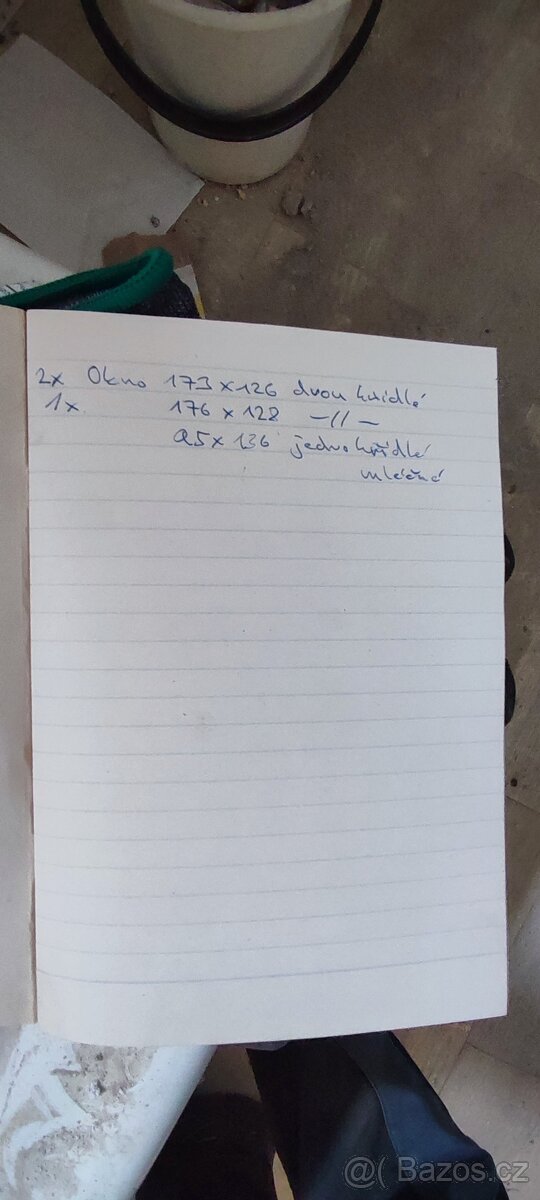 2x Okno 173x126 dvou křídlé
1x 176 x 128 -//-
95x136 jednokřídlé
mléčné
@( Bazos.cz